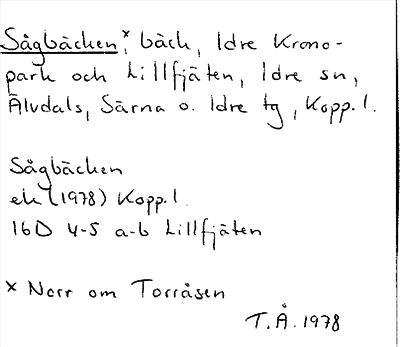 Sågbäcken,* bäck, Idre Krono-
park och Lillfjäten, Idre sn,
Älvdals, Särna o. Idre tg, Kopp. l.
Sågbäcken
ek (1978) Kopp. l.
16D 4-5 a-b Lillfjäten
* Norr om Torråsen
T.Å. 1978